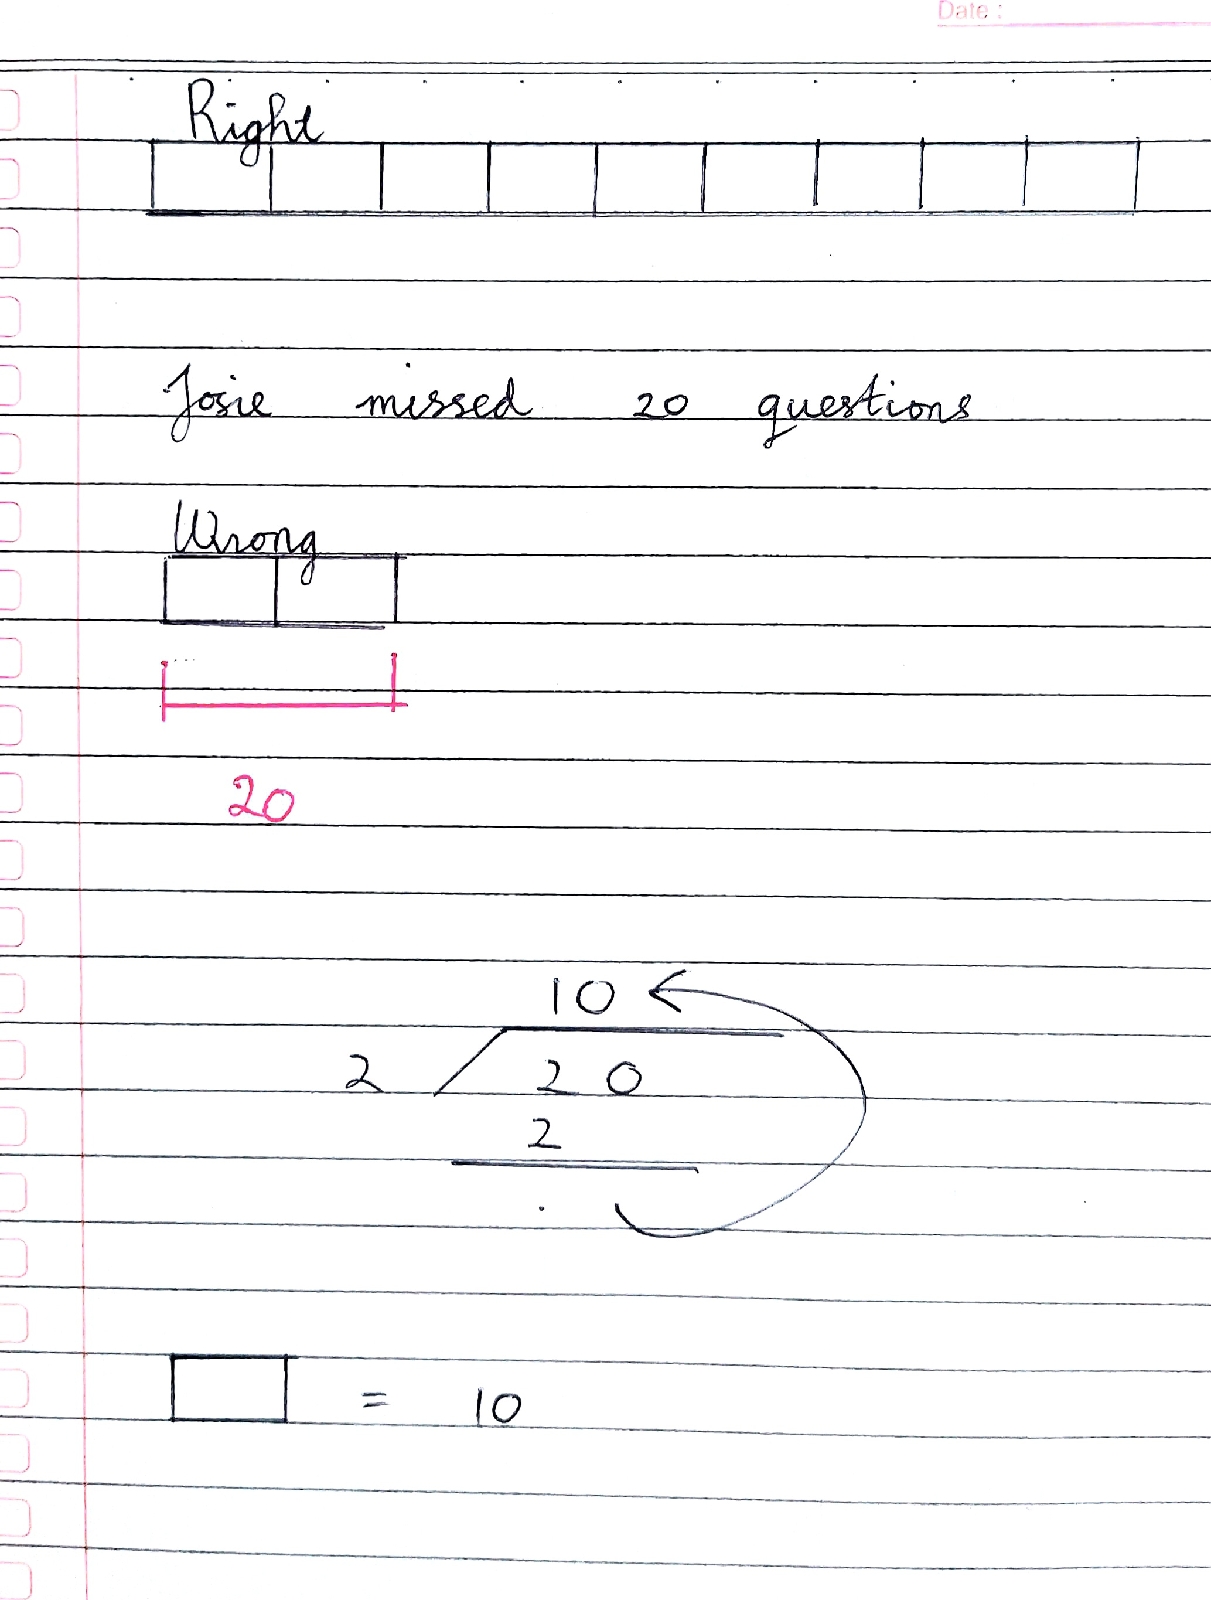 Date :
Right
Josie missed 20 questions
Wrong
20
10
2 20
2
= 10